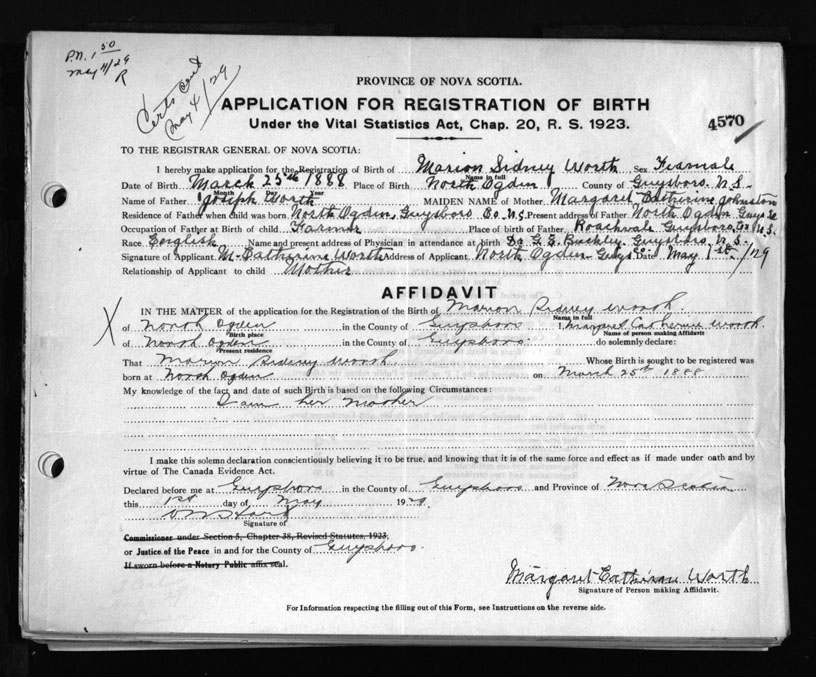 P.N. 1 50
May 4/29
R
Certs sent
May 4/29
PROVINCE OF NOVA SCOTIA.
APPLICATION FOR REGISTRATION OF BIRTH
Under the Vital Statistics Act, Chap. 20, R. S. 1923.
4570
TO THE REGISTRAR GENERAL OF NOVA SCOTIA:
I hereby make application for the Registration of Birth of Marion Sidney Worth Sex Feamale
Name in full
Date of Birth March 25th 1888 Place of Birth North Ogden County of Guysboro. N.S.
Month Day Year
Name of Father Joseph Worth MAIDEN NAME of Mother Margaret Catherine Johnston
Residence of Father when child was born North Ogden, Guysboro Co. N.S. Present address of Father North Ogden Guys Co
Occupation of Father at Birth of child Farmer Place of birth of Father Roachvale Guysboro Co N.S.
Race English Name and present address of Physician in attendance at birth Dr. G. E. Buckley, Guysboro, N.S.
Signature of Applicant M. Catherine Worth Address of Applicant North Ogden Guys. Co. Date May 1st /29
Relationship of Applicant to child Mother
AFFIDAVIT
X
IN THE MATTER of the application for the Registration of the Birth of Marion Sidney Worth.
Name in full
of North Ogden in the County of Guysboro I, Margaret Catherine Worth.
Birth place Name of person making Affidavit
of North Ogden in the County of Guysboro. do solemnly declare:
Present residence
That Marion Sidney Worth. Whose Birth is sought to be registered was
born at North Ogden on March 25th 1888
My knowledge of the fact and date of such Birth is based on the following Circumstances:
I am her mother
I make this solemn declaration conscientiously believing it to be true, and knowing that it is of the same force and effect as if made under oath and by
virtue of The Canada Evidence Act.
Declared before me at Guysboro in the County of Guysboro and Province of Nova Scotia
this 1st day of May 1929.
Signature of
Commissioner under Section 5, Chapter 38, Revised Statutes, 1923,
or Justice of the Peace in and for the County of Guysboro.
If sworn before a Notary Public affix seal.
Margaret Catherine Worth
Signature of Person making Affidavit.
For Information respecting the filling out of this Form, see Instructions on the reverse side.